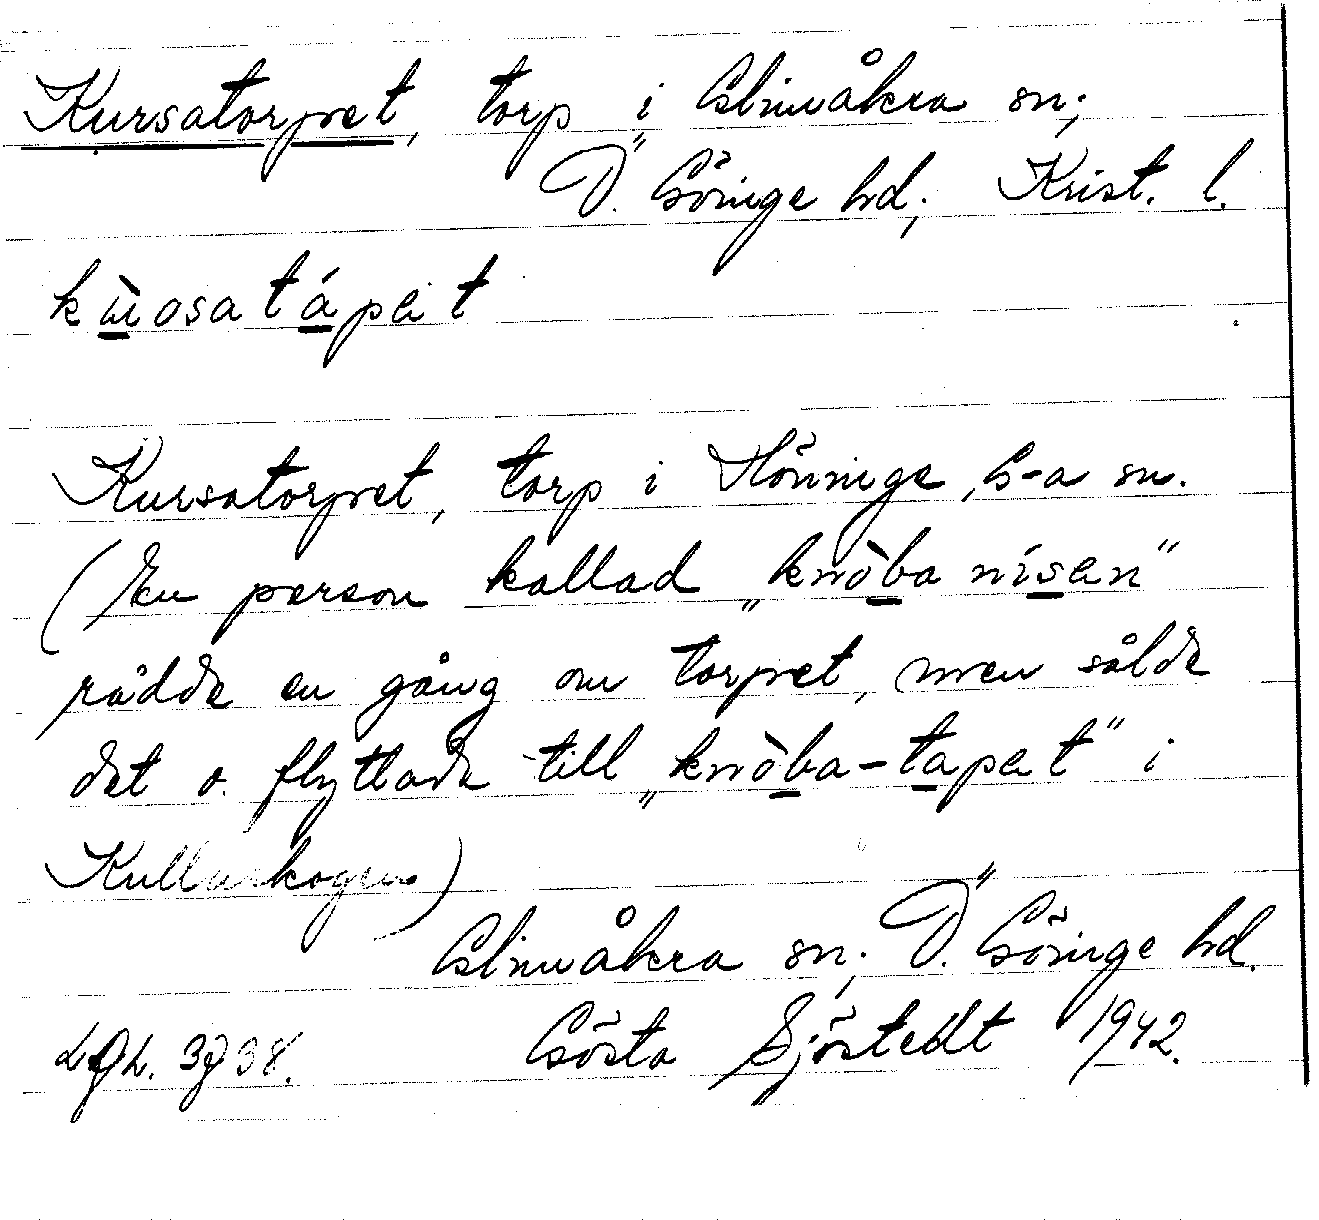 Kursatorpet, torp i Glimåkra sn;
Ö. Göinge hd; Krist. l.
kùosatápet
Kursatorpet, torp i Hönninge, G-a sn.
(En person kallad „knòba nísen"
rådde en gång om torpet, men sålde
det o. flyttade till „knòba-tapet" i
Kullaskogen)
Glimåkra sn; Ö. Göinge hd.
Gösta Sjöstedt 1942.